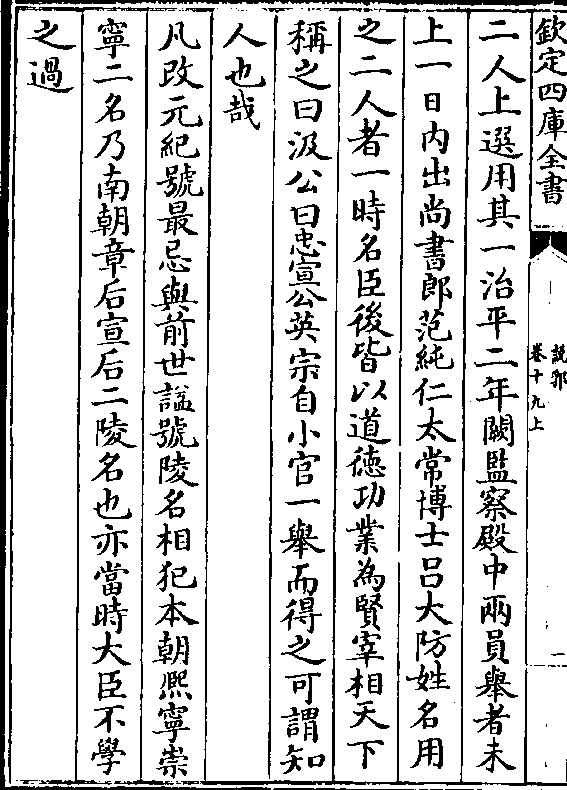 欽定四庫全書
說郛
卷十九上
一
二人上選用其一治平二年闕監察殿中兩員舉者未
上一日内出尚書郎范純仁太常博士吕大防姓名用
之二人者一時名臣後皆以道德功業為賢宰相天下
稱之曰汲公曰忠宣公英宗自小官一舉而得之可謂知
人也哉
凡改元紀號最忌與前世諡號陵名相犯本朝熈寧崇
寧二名乃南朝章后宣后二陵名也亦當時大臣不學
之過